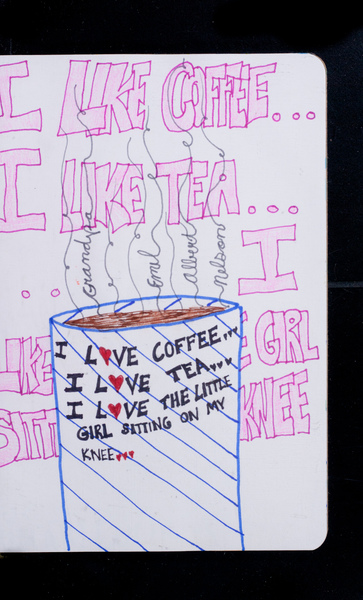 I LIKE COFFEE...
I LIKE TEA...
.. I
LIKE E GIRL
SITT KNEE
Grandpa Emil Albert Nelson
I LOVE COFFEE...
I LOVE TEA....
I LOVE THE LITTLE
GIRL SITTING ON MY
KNEE